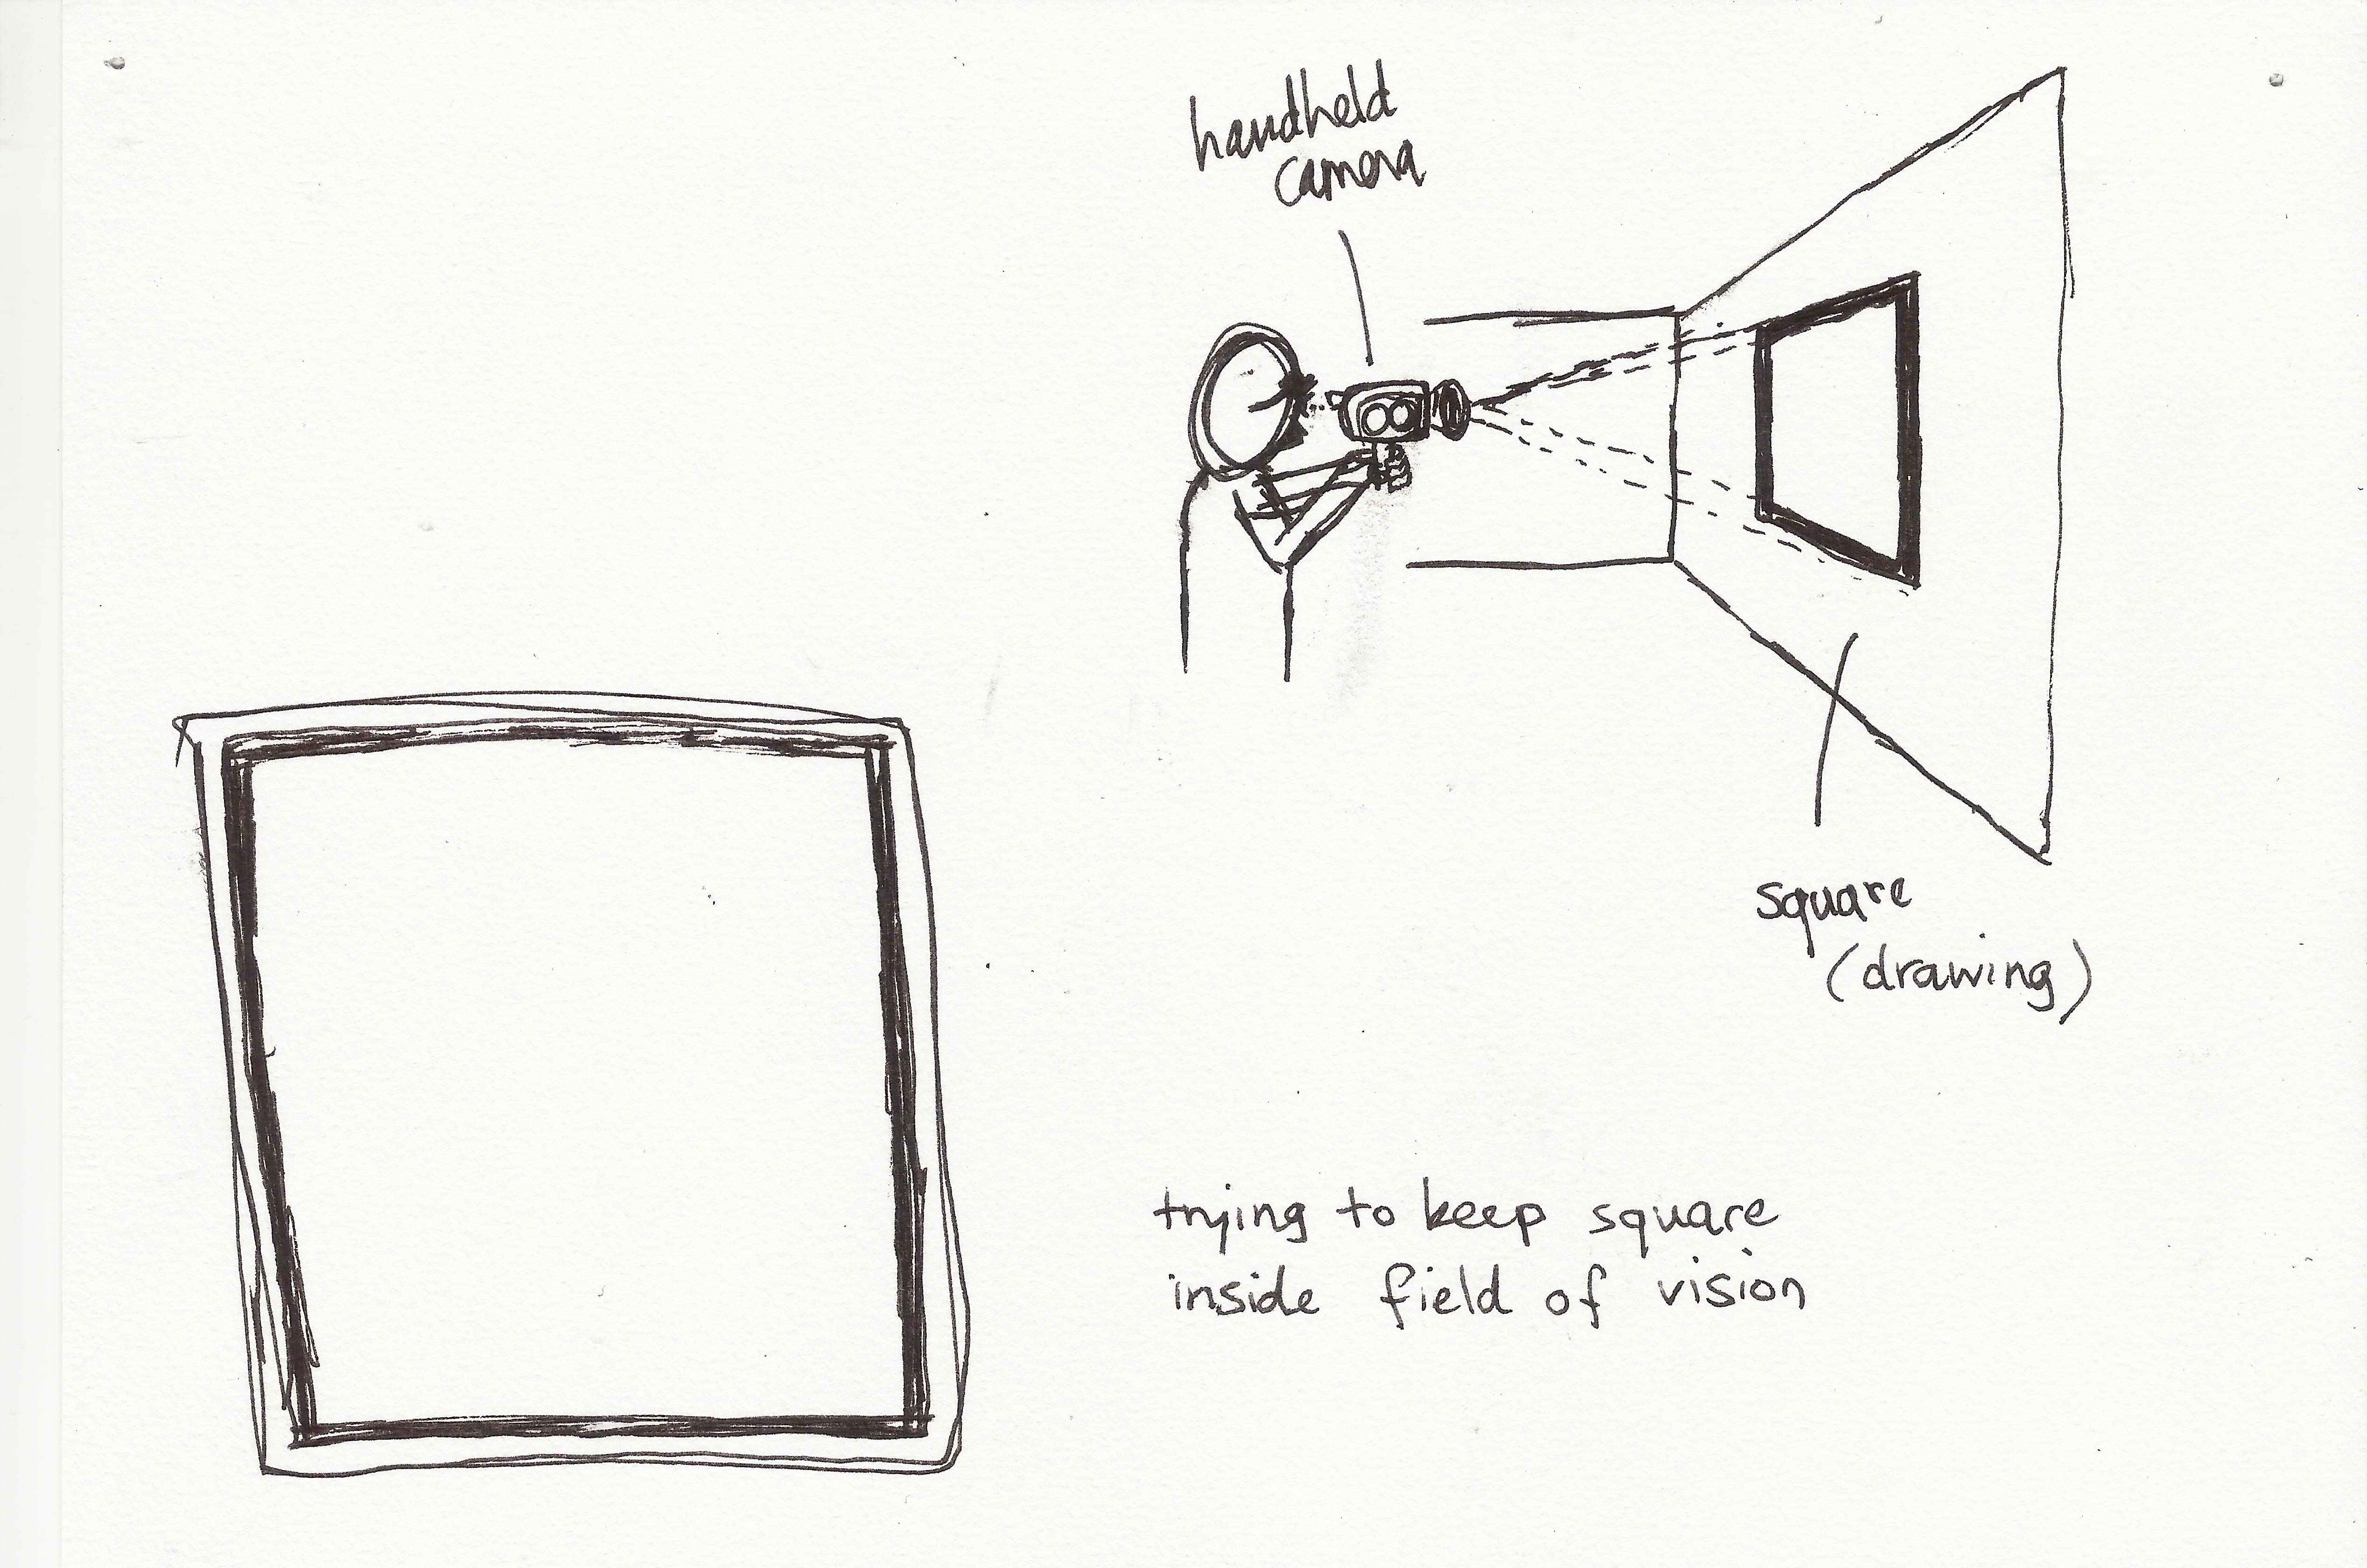 handheld
camera
square
(drawing)
trying to keep square
inside field of vision